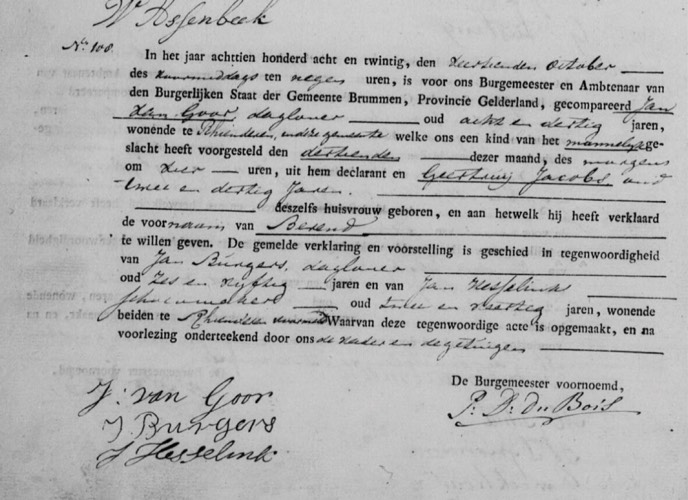 W Assenbeek
No. 108.
In het jaar achttien honderd acht en twintig, den veertienden October
des voormiddags ten negen uren, is voor ons Burgemeester en Ambtenaar van
den Burgerlijken Staat der Gemeente Brummen, Provincie Gelderland, gecompareerd Jan
van Goor, daglooner oud acht en dertig jaren,
wonende te Rhienderen, in deze gemeente welke ons een kind van het mannelijk ge-
slacht heeft voorgesteld den dertienden dezer maand, des morgens
om vier uren, uit hem declarant en Geertruij Jacobs oud
twee en dertig Jaren.
deszelfs huisvrouw geboren, en aan hetwelk hij heeft verklaard
de voornaam van Berend
te willen geven. De gemelde verklaring en voorstelling is geschied in tegenwoordigheid
van Jan Burgers, daglooner
oud zes en vyftig jaren en van Jan Hesselink
schoenmaker oud twee en veertig jaren, wonende
beiden te Rhienderen voormeld Waarvan deze tegenwoordige acte is opgemaakt, en na
voorlezing onderteekend door ons de vader en de getuigen
De Burgemeester voornoemd,
J. van Goor
P. D. Du Bois
J Burgers
J Hesselink